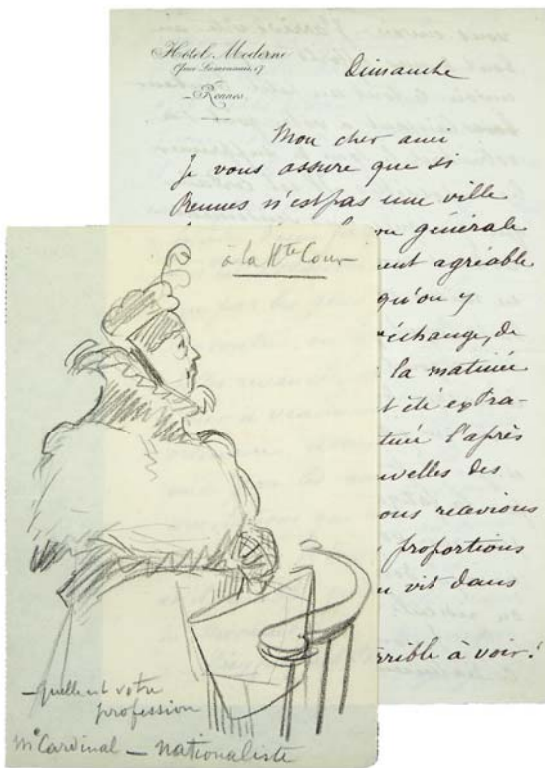 Hôtel Moderne
Quai Lamennais, 17
Rennes
Dimanche
Mon cher ami
Je vous assure que si
Rennes n'est pas une ville
générale
agréable
qu'on y
échange, de
la matinée
été extra-
l'après
des
recevions
proportions
vit dans
à voir!
à la Hte Cour
— quelle est votre
profession
Me Cardinal — nationaliste